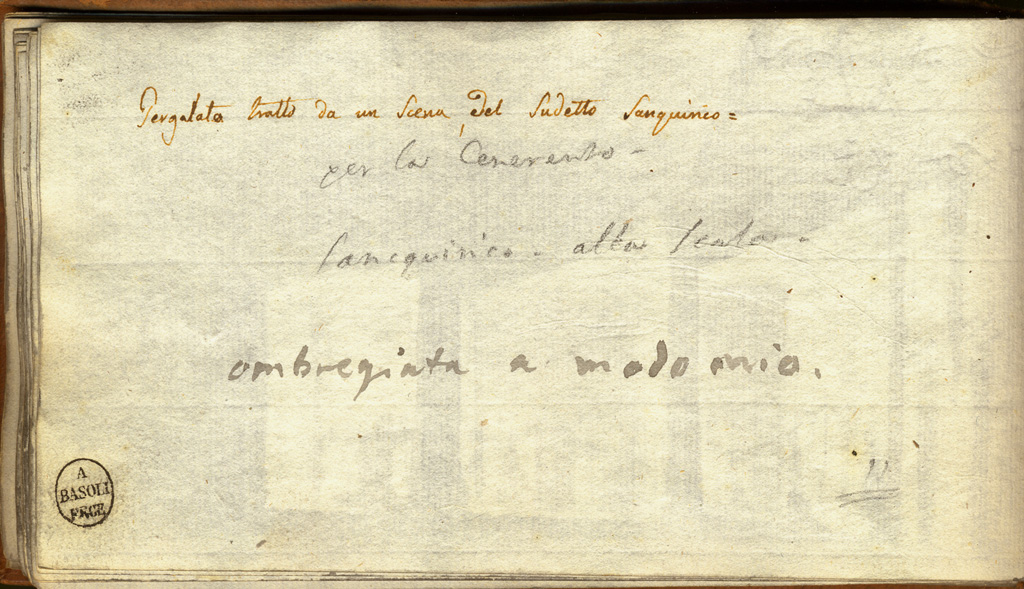 Pergalata tratto da un Scena, del Sudetto Sanquirico =
per la Cenerento -
Sancquirico - alla Scala -
ombregiata a modo mio.
11
A
BASOLI
FECE